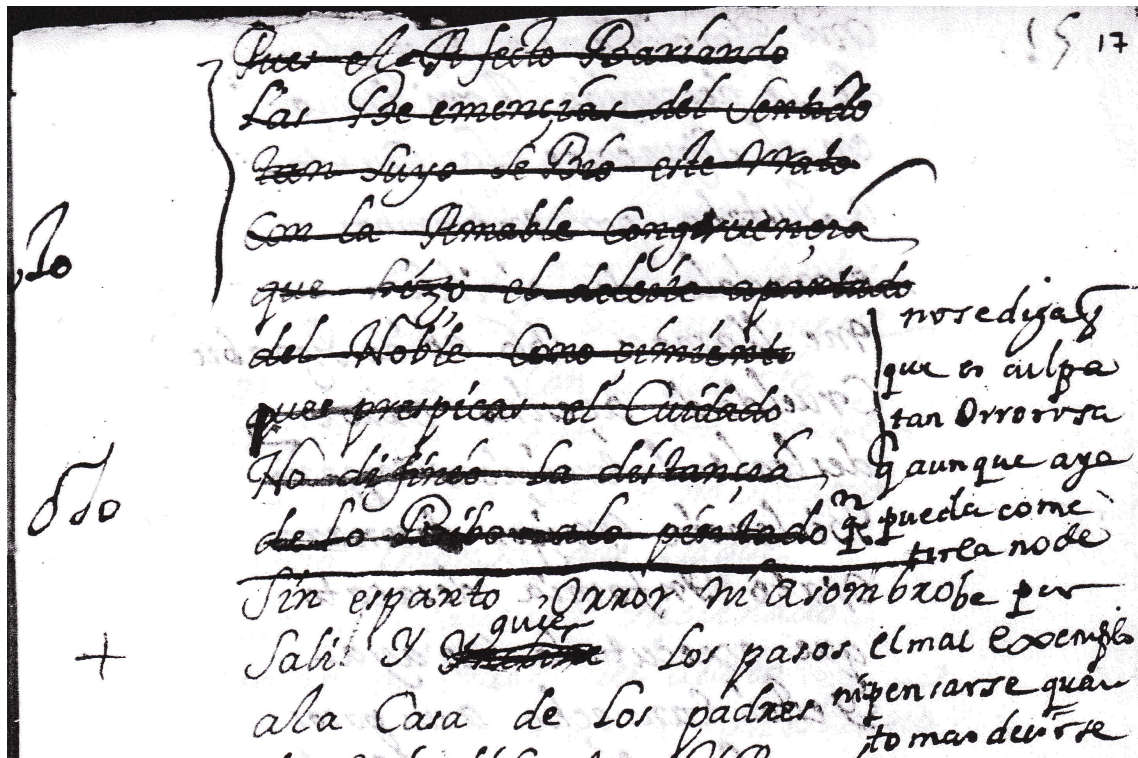 17
Pues el Afecto Bariando
Las Be emençias del Sentido
tan Suyo se Bio este Rato
Con la Amable Congruençia
que hizo el deleite apartado
del Noble Cono cimiento
pues prespicas el Cuidado
No difinio la distançia
de Lo Bibo a lo pintado
Sin espanto, Orror ni Asombro
Sali! Y guie Los pasos
a la Casa de Los padres
no se diga q
que es culpa
tan Orrorosa
q aunque aya
qn pueda come
terla no de
be por
el mal Exemplo
ni pensarse quan
to mas decirse